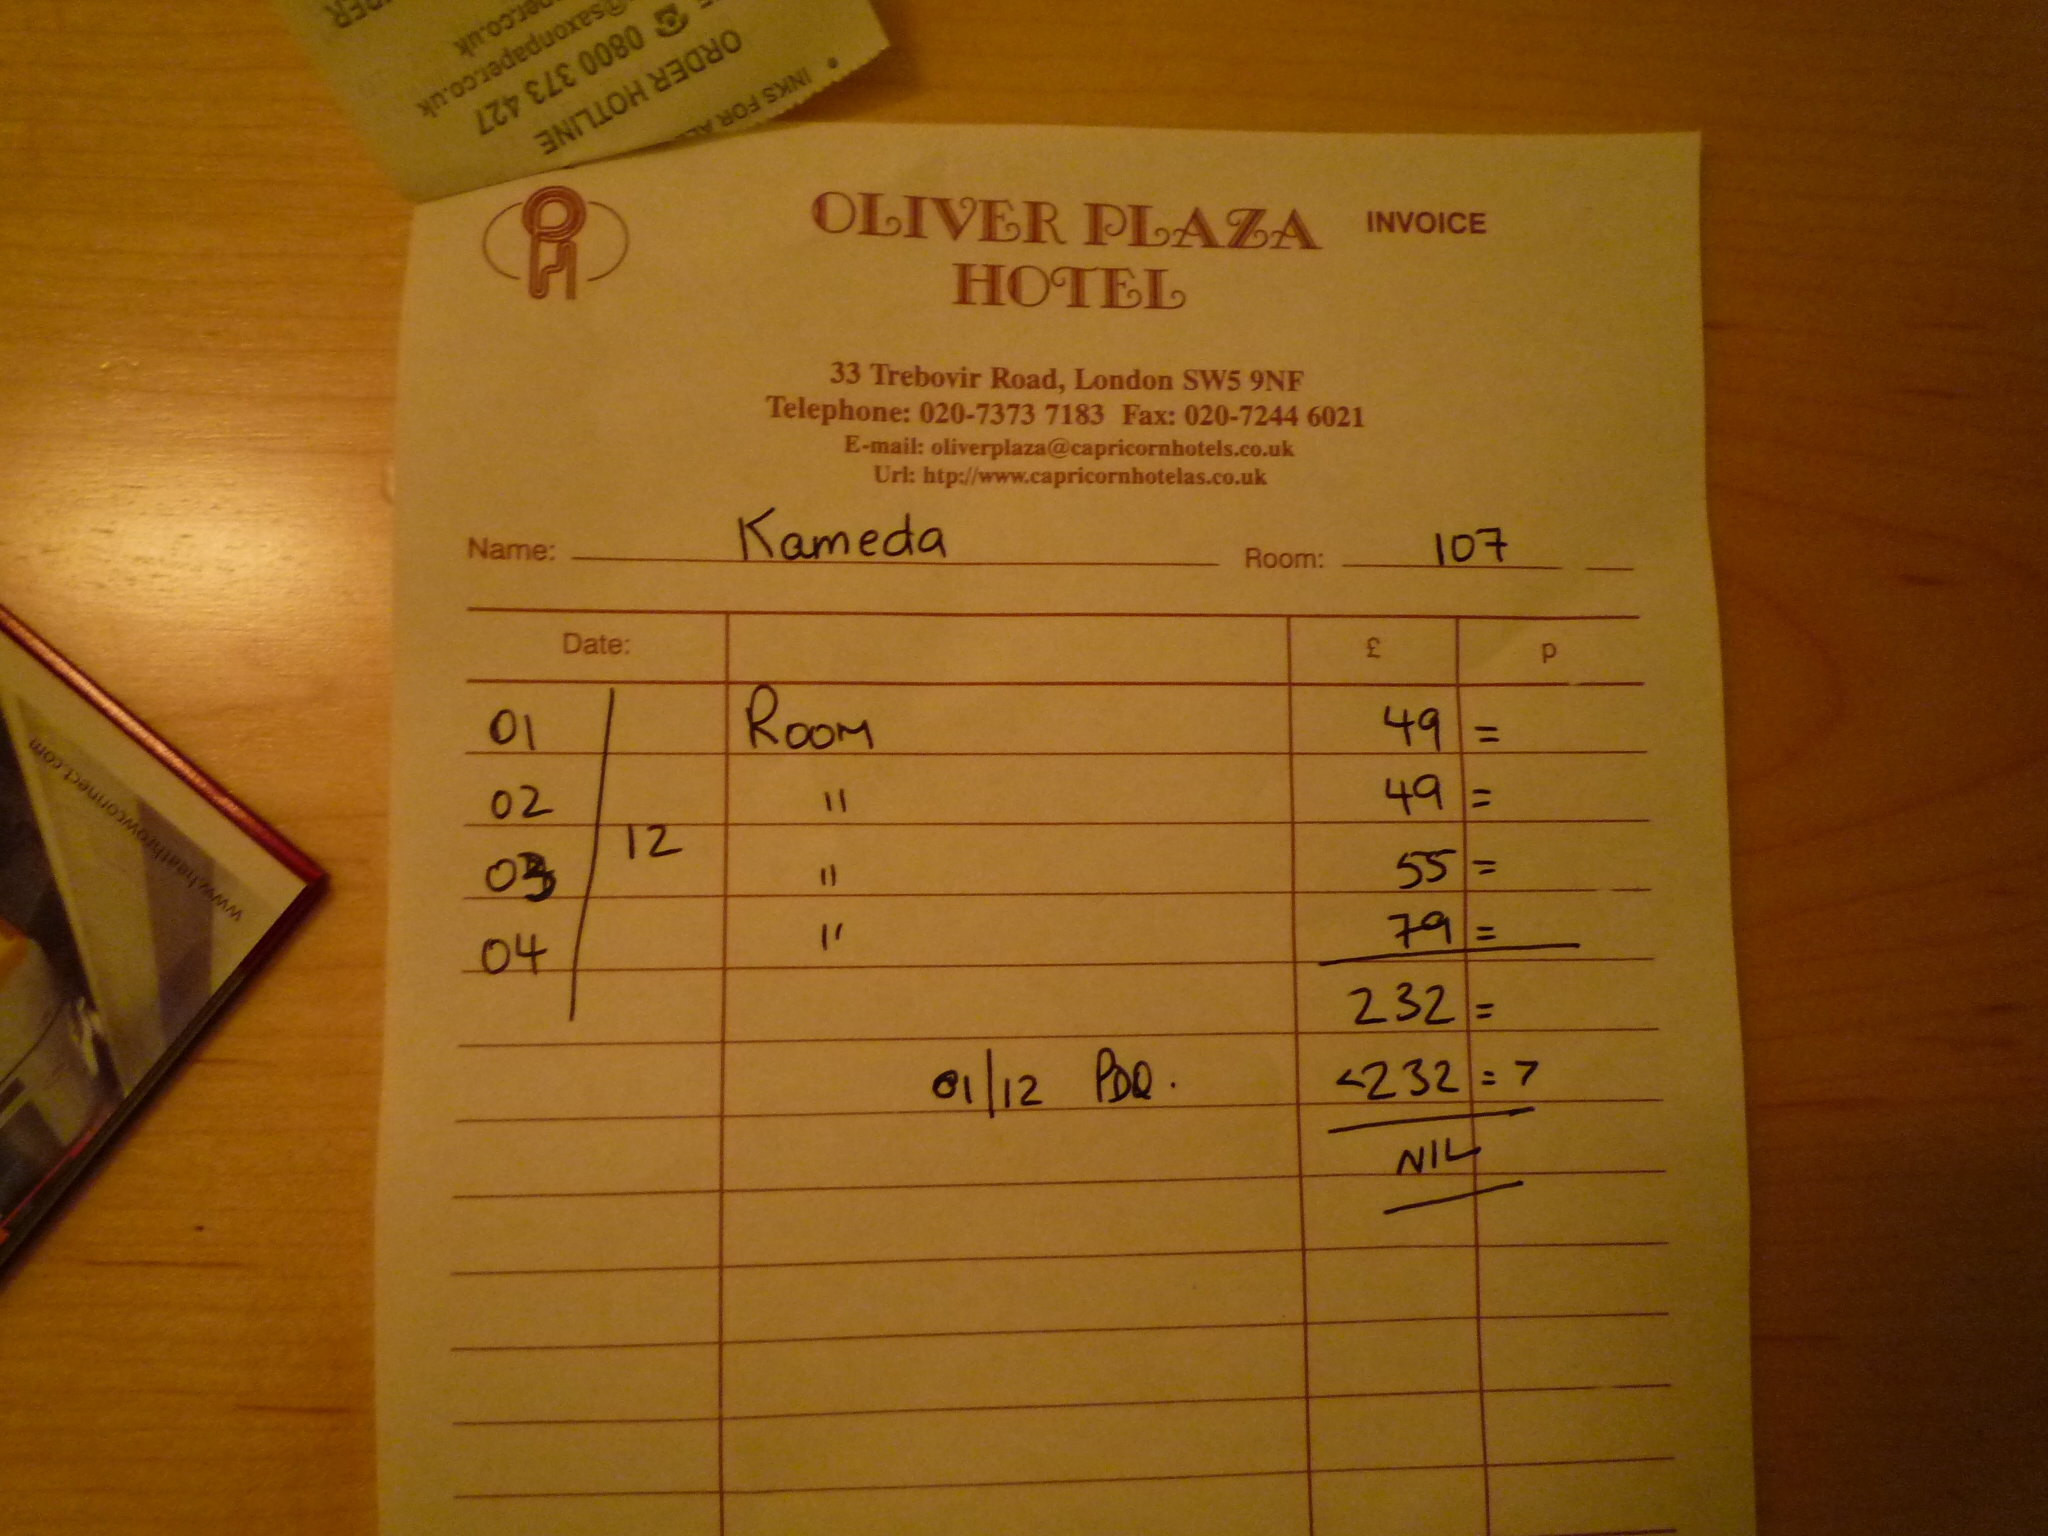 INKS FOR ALL
ORDER HOTLINE
0800 373 427
OLIVER PLAZA
HOTEL
INVOICE
33 Trebovir Road, London SW5 9NF
Telephone: 020-7373 7183 Fax: 020-7244 6021
E-mail: oliverplaza@capricornhotels.co.uk
Url: htp://www.capricornhotelas.co.uk
Name: Kameda Room: 107
Date: £ p
01 Room 49 =
02 " 49 =
12
03 " 55 =
04 " 79 =
232 =
01/12 PDQ. <232 = >
NIL
www.heathrowconnect.com